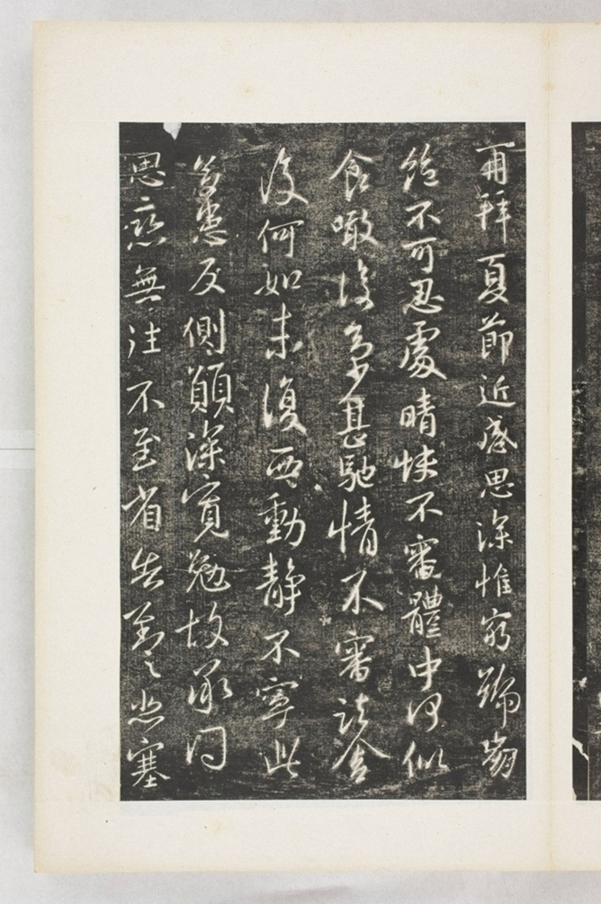 再拜夏節近感思深惟窮號崩
絕不可忍處晴快不審體中何似
食噉復多少甚馳情不審談舍
復何如未復西動靜不寧此
善悉反側顛深寬勉故承問
思戀無往不至省告對之悲塞